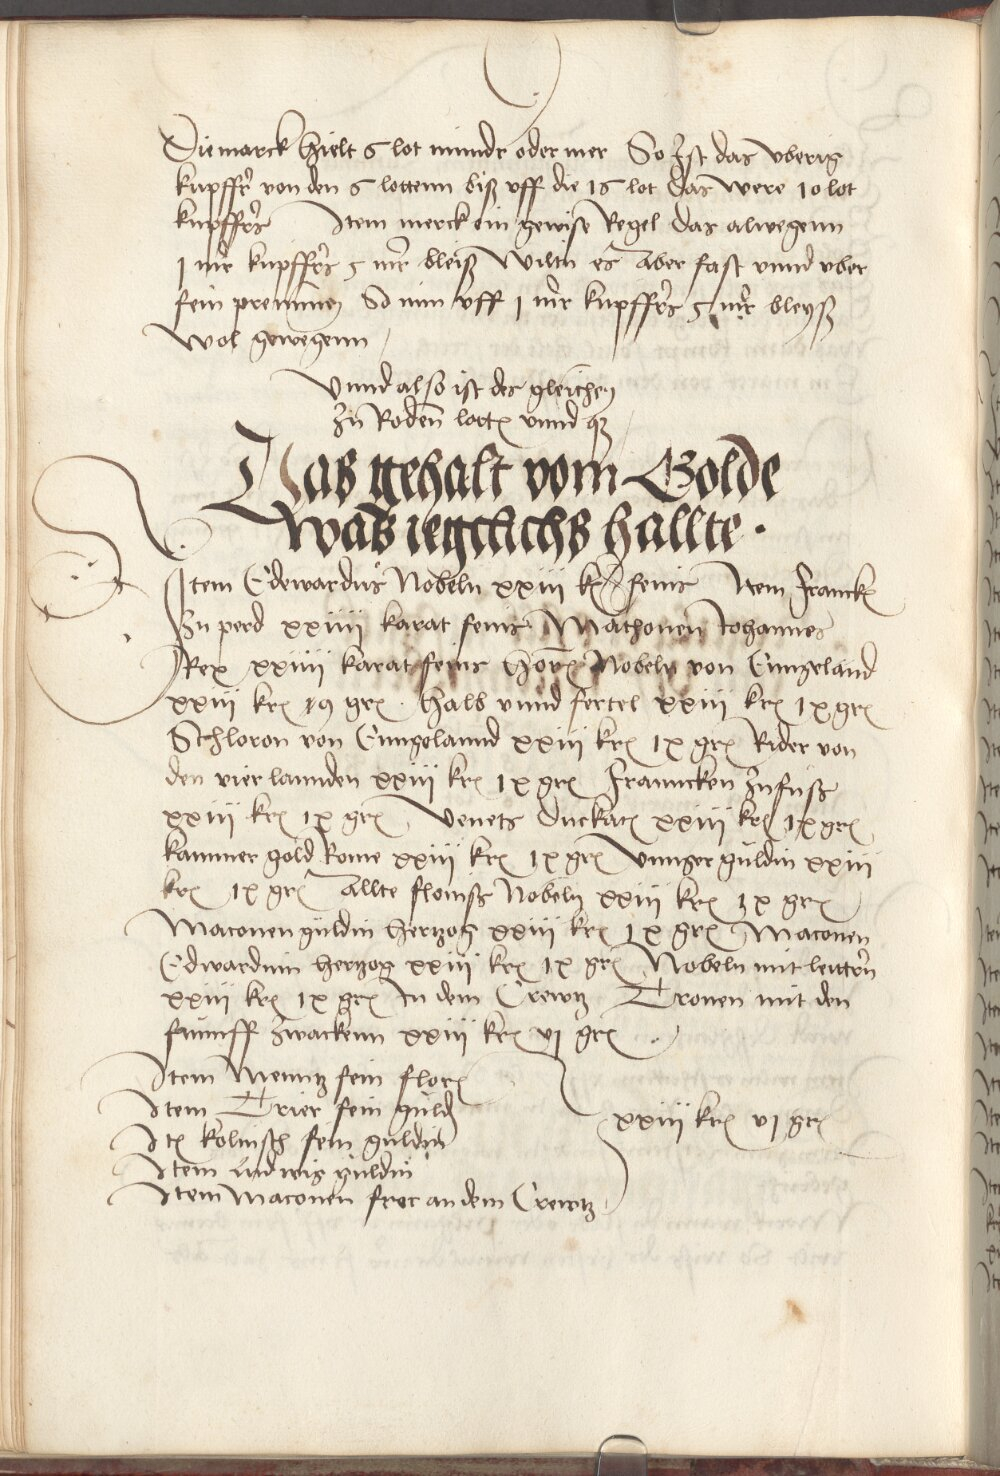 Die marck hielt 6 lot minder oder mer So Ist das vberig
kupffer von den 6 lottenn biß vff die 16 lot das were 10 lot
kupffers Item merck ein gewise Regel das alwegenn
1 mr kupffers 5 mr bleiß Wiltu es Aber fast vnnd vber
fein prennen So nim vff 1 mr kupffers 5 mr bleyß
Wol gewegenn
Vnnd also ist des gleichen
Zu Roden lott vnnd
Das gehalt vom Golde
was ieglichs hallte.
Item Edewardus Nobeln xxiii kr feins Item Franck
Zu perd xxiiii karat feins Mathonen Johannes
Rex xxiiii karat feins Nobeln von Enngeland
xxiii kr gr. halb vnnd fertel xxiii kr ix gr
Schloron von Enngelannd xxiii kr ix gr Rider von
den vier lannden xxiii kr ix gr Franncken Zufuß
xxiii kr ix gr Venets Duckat xxiii kr ix gr
kammer gold Rome xxiii kr ix gr Vnnger guldin xxiii
kr ix gr Allte Nobeln xxiii kr ix gr
Maconen guldin hertzog xxiii kr ix gr Maconen
Edwardum hertzog xxiii kr ix gr Nobeln mit leittern
xxiii kr ix gr In dem Crewtz Cronen mit den
funnff Zwackenn xxiii kr vi gr
Item Menntz fein flor
Item Trier fein guld
xxiii kr vi gr
It kolnisch fein guldin
Item Ludwig guldin
Item Maconen an dem Crewtz